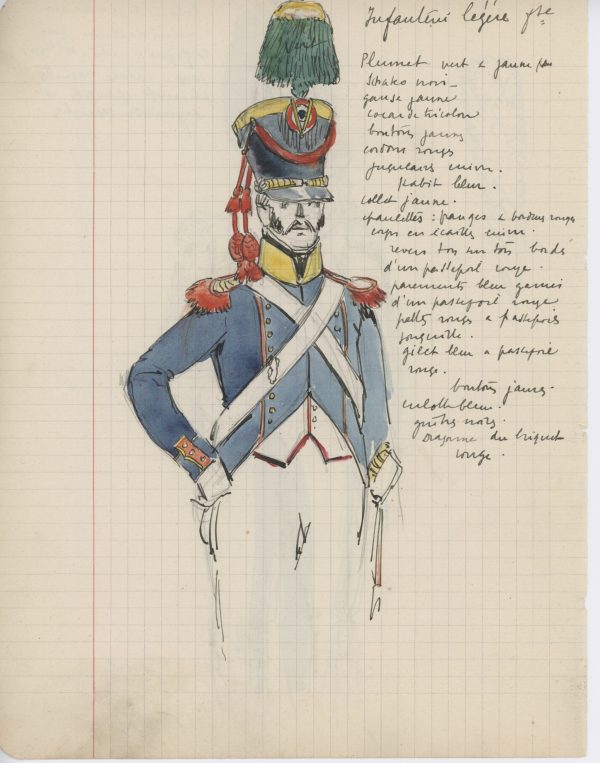 Infanterie légère gde
Vert
Plumet vert à jaune
Schako noir
ganse jaune
cocarde tricolore
boutons jaunes
cordons rouges
jugulaires cuivre.
Habit bleu.
collet jaune.
épaulettes : franges à bordures rouges
corps en écailles cuivre.
revers bordés
d'un passepoil rouge.
parements bleu garnis
d'un passepoil rouge
pattes rouges à passepoils
jonquille.
gilet bleu à passepoil
rouge.
boutons jaunes.
culotte bleu.
guêtres noires.
Dragonne du briquet
rouge.